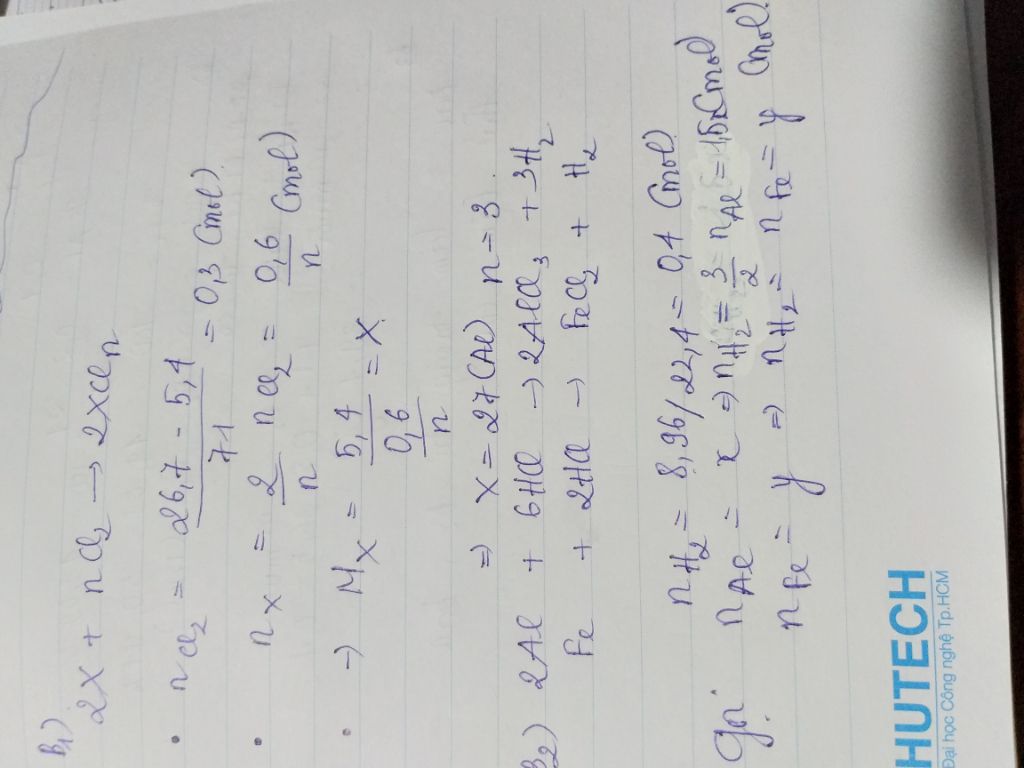 B1)
2X + nCl2 → 2XCln
• nCl2 = 26,7 - 5,4 / 71 = 0,3 (mol).
• nX = 2/n nCl2 = 0,6/n (mol)
• → MX = 5,4 / 0,6/n = X.
⇒ X = 27 (Al) n = 3.
B2) 2Al + 6HCl → 2AlCl3 + 3H2
Fe + 2HCl → FeCl2 + H2
nH2 = 8,96/22,4 = 0,4 (mol).
Gọi nAl = x ⇒ nH2 = 3/2 nAl = 1,5x (mol)
nFe = y ⇒ nH2 = nFe = y (mol).
HUTECH
Đại học Công nghệ Tp.HCM